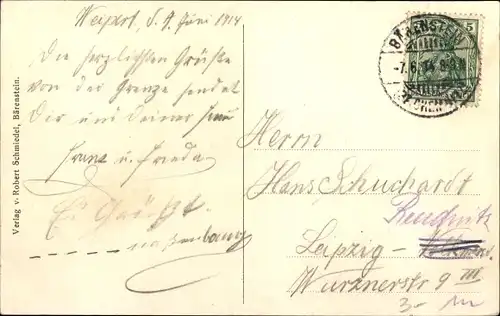 Weipert, d. 7. Juni 1914
Die herzlichsten Grüße
von der Grenze sendet
Dir und Deiner Frau
Franz u. Frieda
Es Grüßt.
Verlag v. Robert Schmiedel, Bärenstein.
BÄRENSTEIN
-7.6.14
5
Herrn
Hans Schuchardt
Reudnitz
Leipzig-
Wurznerstr. 9 III